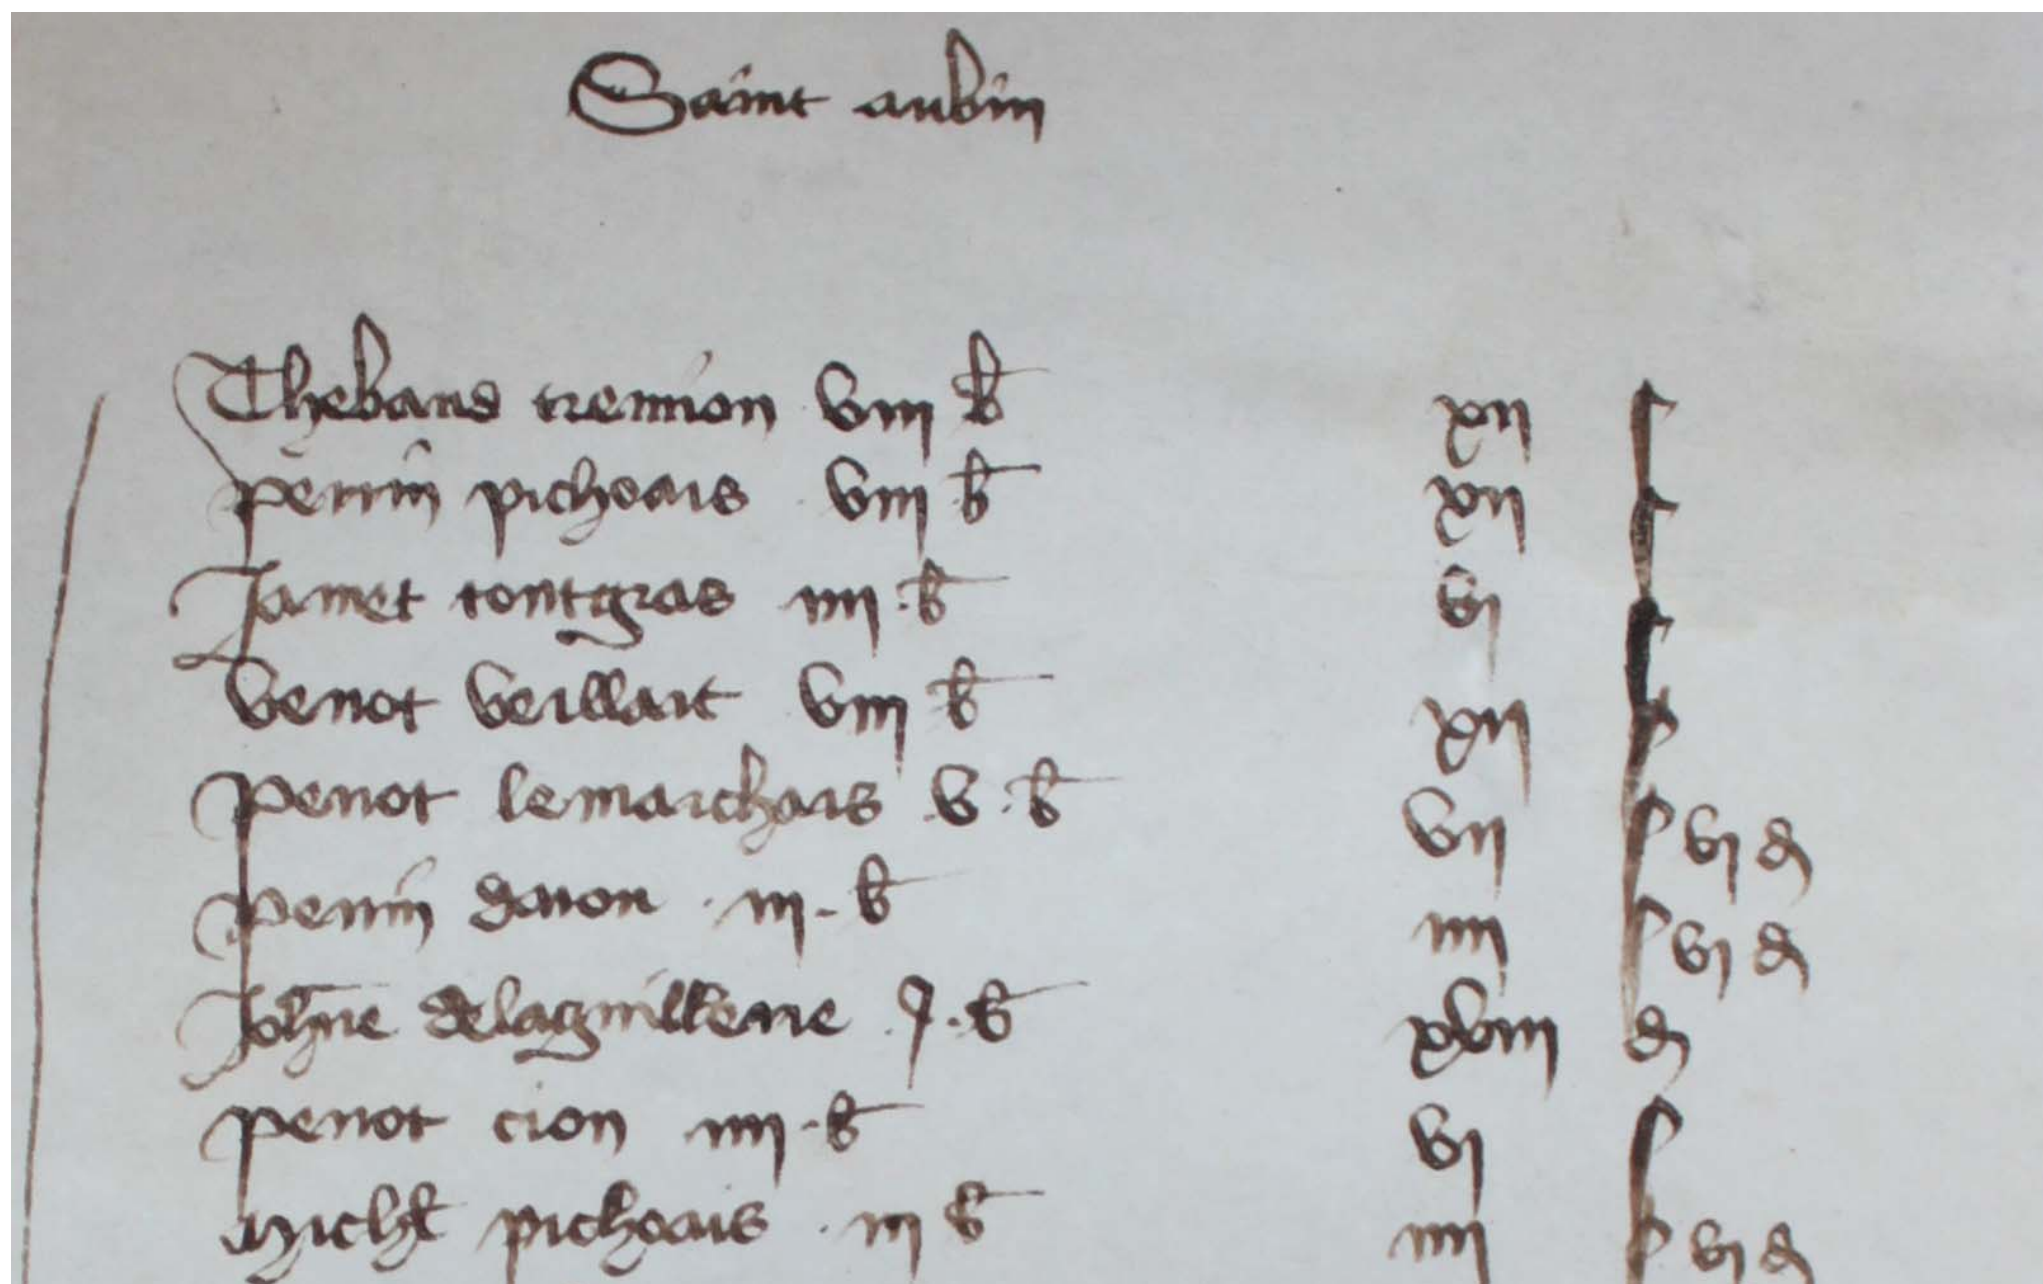 Saint aubin
Thebaud trennion viii b xii s
perrin pichoais viii b xii s
Jamet tontgras iiii b vi s
venot veillart viii b xii s
penot lemarchais v b vii s vi d
perrin davon iii b iiii s vi d
Johanne delaguillerie j b xviii d
penot cion iiii b vi s
Michel pichoais iii b iiii s vi d